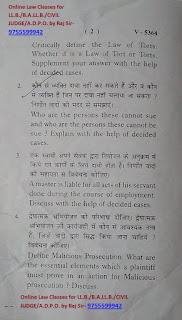 Online Law Classes for
LL.B./B.ALL.B./CIVIL
JUDGE/A.D.P.O. by Raj Sir-
9755599942
( 2 )
V - 5364
Critically define the Law of Torts.
Whether it is a Law of Tort or Torts.
Supplement your answer with the help
of decided cases.
2. कौन से व्यक्ति दावा नहीं कर सकते हैं और वे कौन
से व्यक्ति हैं जिन पर दावा नहीं चलाया जा सकता ?
निर्णीत वादों की मदद से समझाएं।
Who are the persons these cannot sue
and who are the persons these cannot be
sue ? Explain with the help of decided
cases.
3. एक स्वामी अपने सेवक द्वारा नियोजन के अनुक्रम में
किये गए कार्यों के लिए दायी होता है। निर्णीत वादों
की सहायता से विवेचना कीजिए।
A master is liable for all acts of his servant
done during the course of employment.
Discuss with the help of decided cases.
4. द्वेषात्मक अभियोजन को परिभाषित कीजिए। द्वेषात्मक
अभियोजन की कार्यवाही में कौन से आवश्यक तत्व
हैं, जिन्हें वादी द्वारा सिद्ध किया जाना चाहिये ?
विवेचना कीजिए।
Define Malicious Prosecution. What are
the essential elements which a plaintiff
must prove in an action for Malicious
prosecution ? Discuss.
Online Law Classes for LL.B./B.ALL.B./CIVIL
JUDGE/A.D.P.O. by Raj Sir- 9755599942